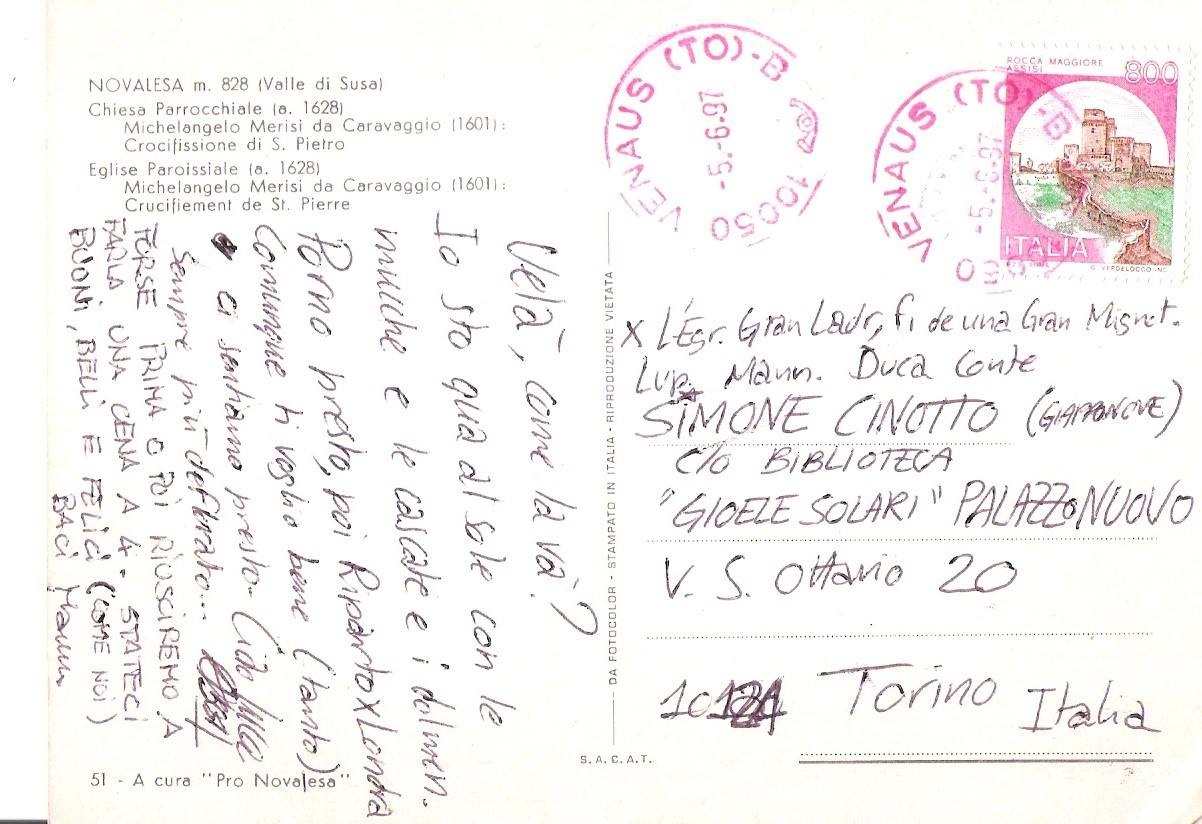 NOVALESA m. 828 (Valle di Susa)
Chiesa Parrocchiale (a. 1628)
Michelangelo Merisi da Caravaggio (1601):
Crocifissione di S. Pietro
Eglise Paroissiale (a. 1628)
Michelangelo Merisi da Caravaggio (1601):
Crucifiement de St. Pierre
Velà, come la va?
Io sto qua al sole con le
mucche e le cascate e i dolmen.
Porno presto, poi Riparto x Londra
Comunque ti voglio bene (tanto)
ci sentiamo presto. Ciao
Sempre più
FORSE PRIMA O POI RIUSCIREMO A
FARLA UNA CENA A 4. STATECI
BUONI, BELLI E FELICI (COME NOI)
BACI
51 - A cura "Pro Novalesa"
DA FOTOCOLOR - STAMPATO IN ITALIA - RIPRODUZIONE VIETATA
S.A.C.A.T.
VENAUS (TO)-B
-5.-6.97
10050
VENAUS (TO)-B
-5.-6.97
ROCCA MAGGIORE
ASSISI
800
ITALIA
X L'Egr. Gran Ladr, fi de una Gran Mignot.
Lup. Mann. Duca Conte
SIMONE CINOTTO (GIAPPONOVE)
C/O BIBLIOTECA
"GIOELE SOLARI" PALAZZO NUOVO
V. S. Ottavio 20
10124 Torino
Italia